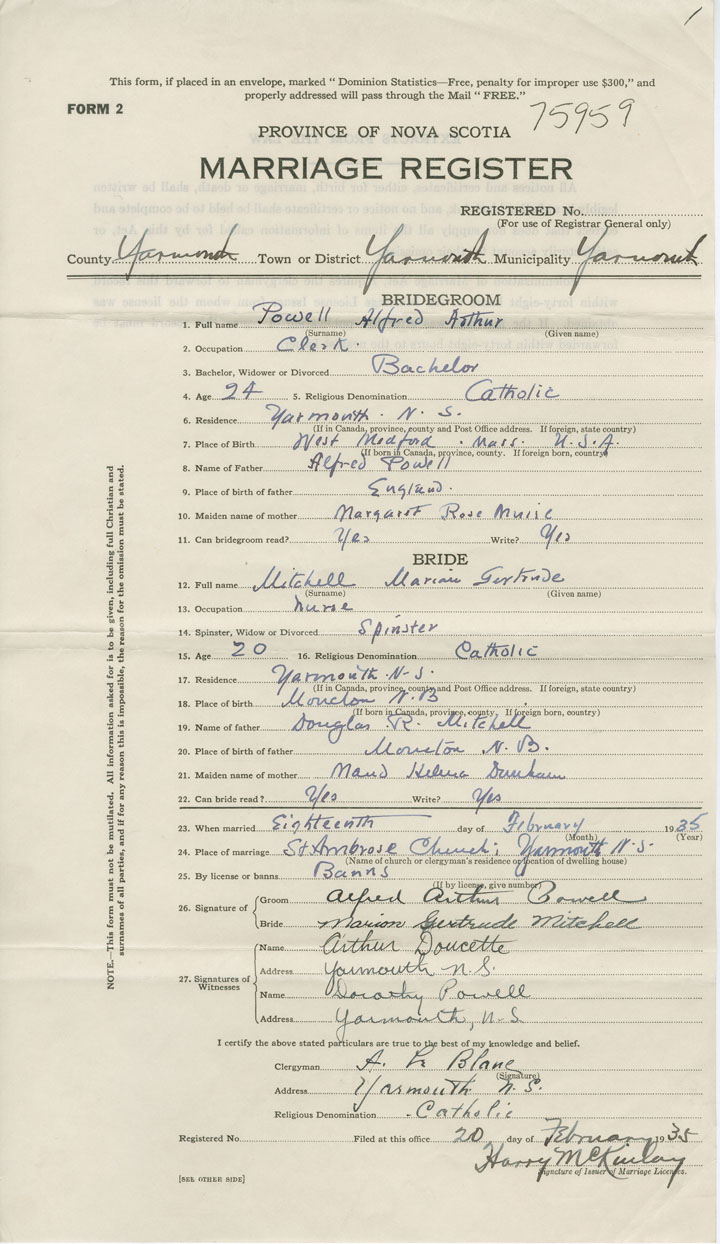 This form, if placed in an envelope, marked " Dominion Statistics—Free, penalty for improper use $300," and
properly addressed will pass through the Mail " FREE."
FORM 2
75959
PROVINCE OF NOVA SCOTIA
MARRIAGE REGISTER
REGISTERED No.
(For use of Registrar General only)
County Yarmouth Town or District Yarmouth Municipality Yarmouth
BRIDEGROOM
1. Full name Powell Alfred Arthur
(Surname) (Given name)
2. Occupation Clerk.
3. Bachelor, Widower or Divorced Bachelor
4. Age 24 5. Religious Denomination Catholic
6. Residence Yarmouth. N. S.
(If in Canada, province, county and Post Office address. If foreign, state country)
7. Place of Birth West Medford. Mass. U.S.A.
(If born in Canada, province, county. If foreign born, country)
8. Name of Father Alfred Powell
9. Place of birth of father England.
10. Maiden name of mother Margaret Rose Muise
11. Can bridegroom read? Yes Write? Yes
BRIDE
12. Full name Mitchell Marian Gertrude
(Surname) (Given name)
13. Occupation Nurse
14. Spinster, Widow or Divorced Spinster
15. Age 20 16. Religious Denomination Catholic
17. Residence Yarmouth N.S.
(If in Canada, province, county and Post Office address. If foreign, state country)
18. Place of birth Moncton N.B
(If born in Canada, province, county. If foreign born, country)
19. Name of father Douglas R. Mitchell
20. Place of birth of father Moncton N. B.
21. Maiden name of mother Maud Helena Dunham
22. Can bride read? Yes Write? Yes
23. When married Eighteenth day of February 1935
(Month) (Year)
24. Place of marriage St Ambrose Church; Yarmouth N.S.
(Name of church or clergyman's residence or location of dwelling house)
25. By license or banns Banns
(If by license, give number)
26. Signature of Groom Alfred Arthur Powell
Bride Marion Gertrude Mitchell
27. Signatures of Witnesses
Name Arthur Doucette
Address Yarmouth N.S.
Name Dorothy Powell
Address Yarmouth, N.S
I certify the above stated particulars are true to the best of my knowledge and belief.
Clergyman A. Le Blanc
(Signature)
Address Yarmouth N.S.
Religious Denomination Catholic
Registered No. Filed at this office 20 day of February 1935
Harry McKinlay
Signature of Issuer of Marriage Licenses.
[SEE OTHER SIDE]
NOTE.—This form must not be mutilated. All information asked for is to be given, including full Christian and
surnames of all parties, and if for any reason this is impossible, the reason for the omission must be stated.